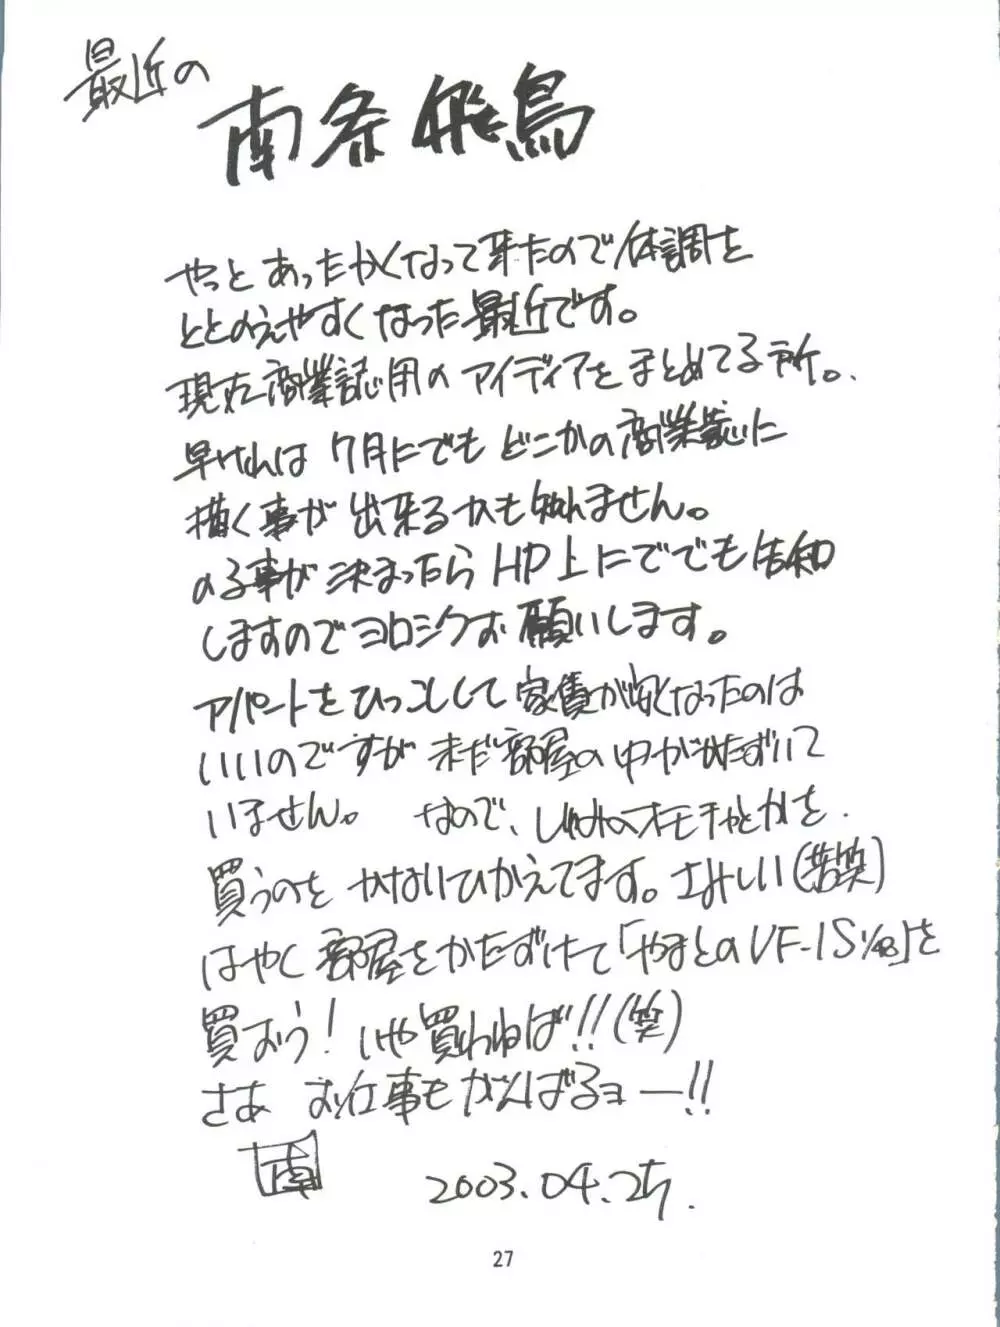 最近の
南条飛鳥
やっと あったかくなって来たので体調を
ととのえやすくなった最近です。
現在商業誌用のアイディアをまとめてる所。
早ければ 7月にでも どこかの商業誌に
描く事が 出来るかも知れません。
のる事が決まったら HP上にででも告知
しますのでヨロシクお願いします。
アパートをひっこしして家賃が安くなったのは
いいのですが 未だ部屋の中がかたずいて
いません。 なので、しゅみのオモチャとかを
買うのを かないひかえてます。さみしい(苦笑)
はやく 部屋をかたずけて「やまとのVF-1S 1/48」を
買おう! いや買わねば!!(笑)
さあ お仕事も がんばるヨー!!
南
2003.04.25.
27